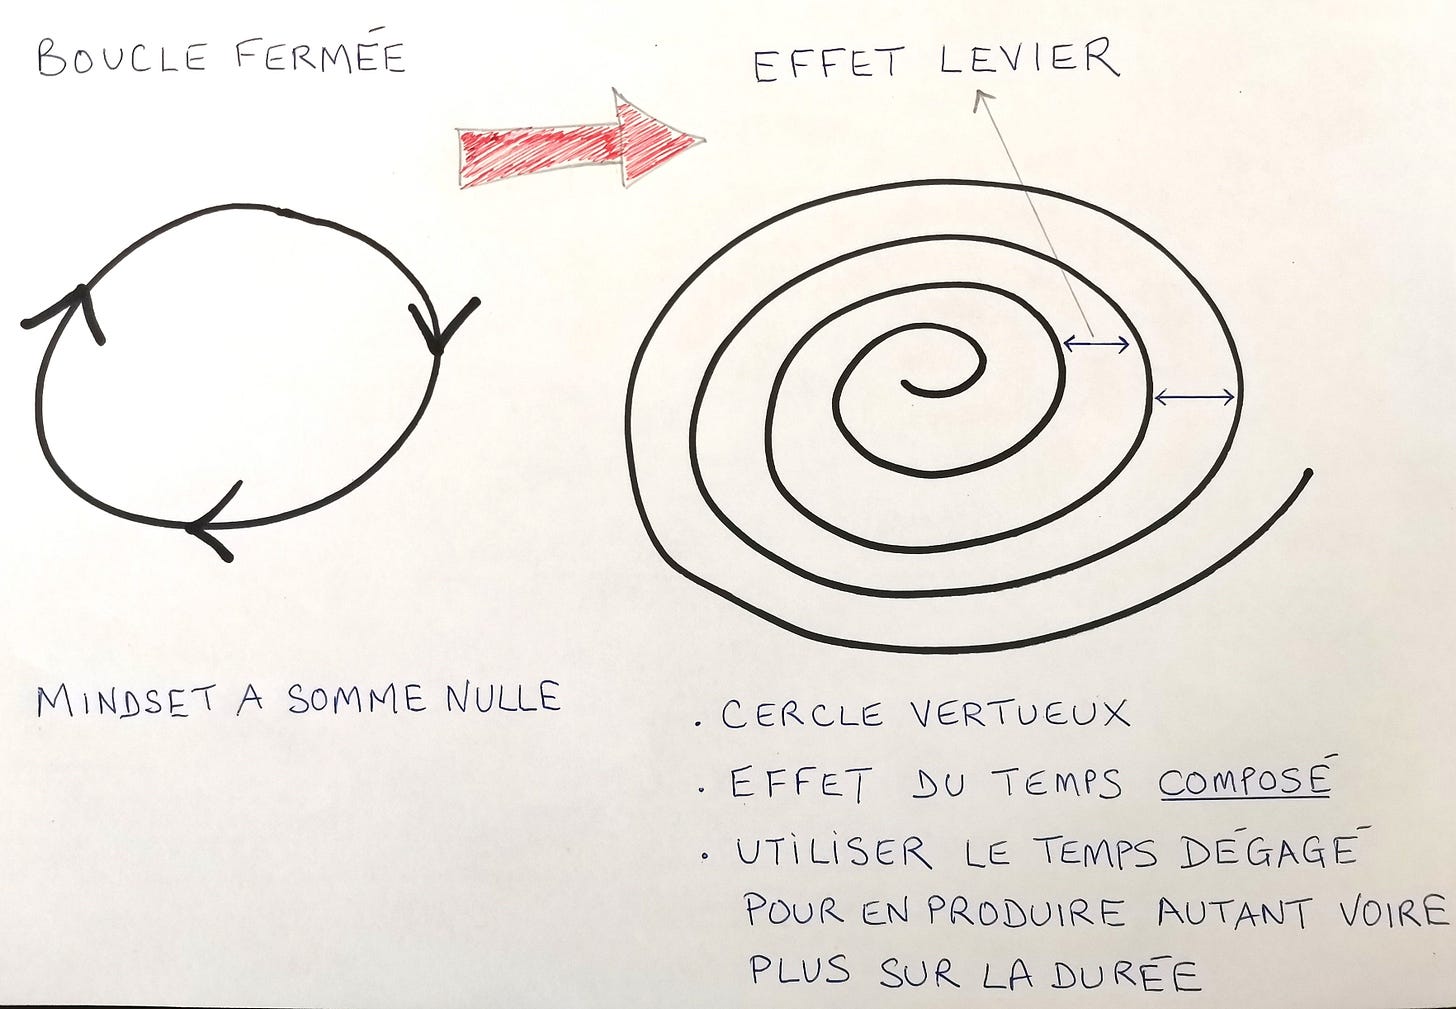 BOUCLE FERMÉE
EFFET LEVIER
MINDSET A SOMME NULLE
. CERCLE VERTUEUX
. EFFET DU TEMPS COMPOSÉ
. UTILISER LE TEMPS DÉGAGÉ
POUR EN PRODUIRE AUTANT VOIRE
PLUS SUR LA DURÉE